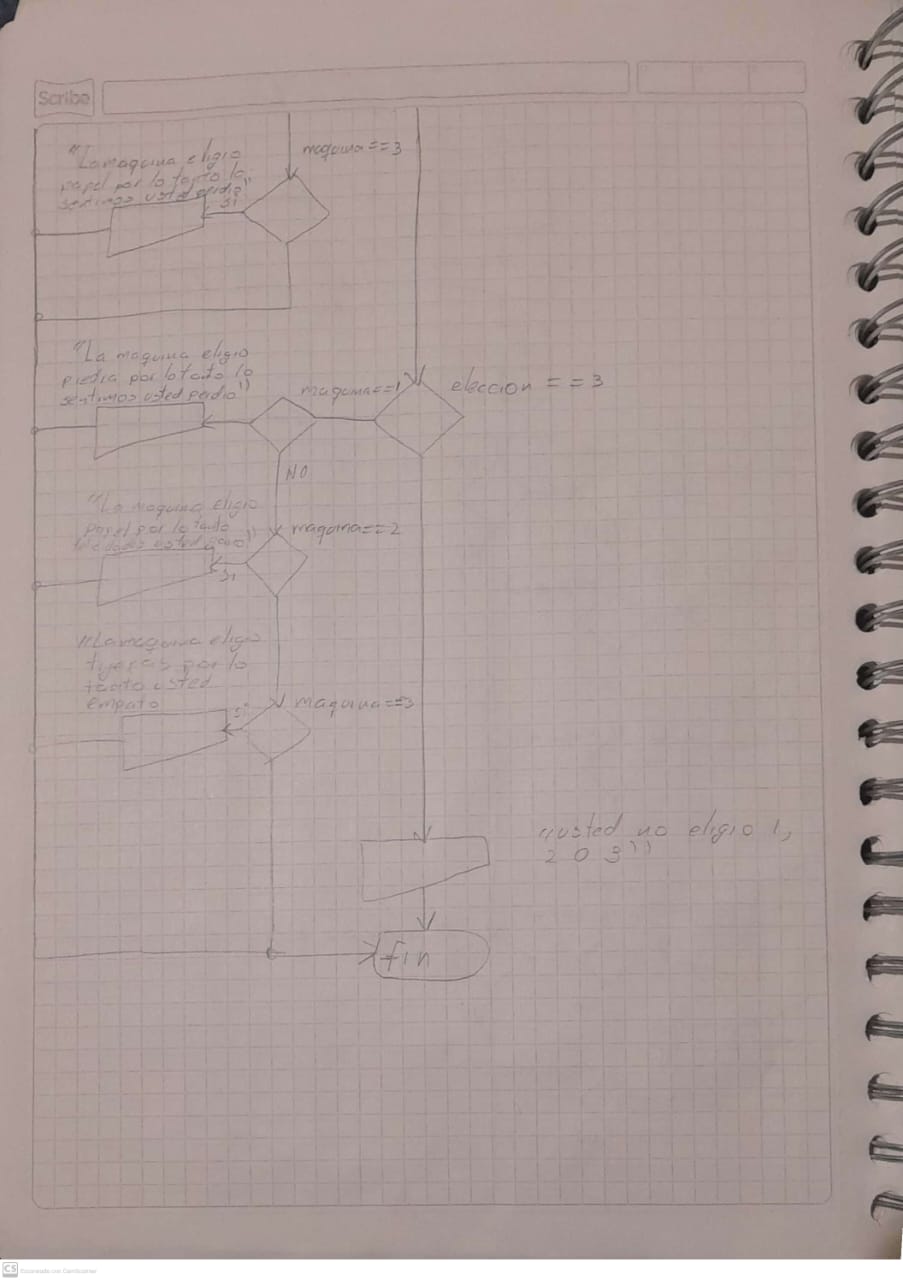 Scribe
maquina==3
"La maquina eligio
papel por lo tanto lo
sentimos usted perdio"
si
"La maquina eligio
piedra por lo tanto lo
sentimos usted perdio"
maquina==1
eleccion ==3
NO
"La maquina eligio
papel por lo tanto
usted gano"
maquina==2
si
"La maquina eligio
tijeras por lo
tanto usted
empato
si
maquina==3
"usted no eligio 1,
2 o 3"
fin
CS Escaneado con CamScanner